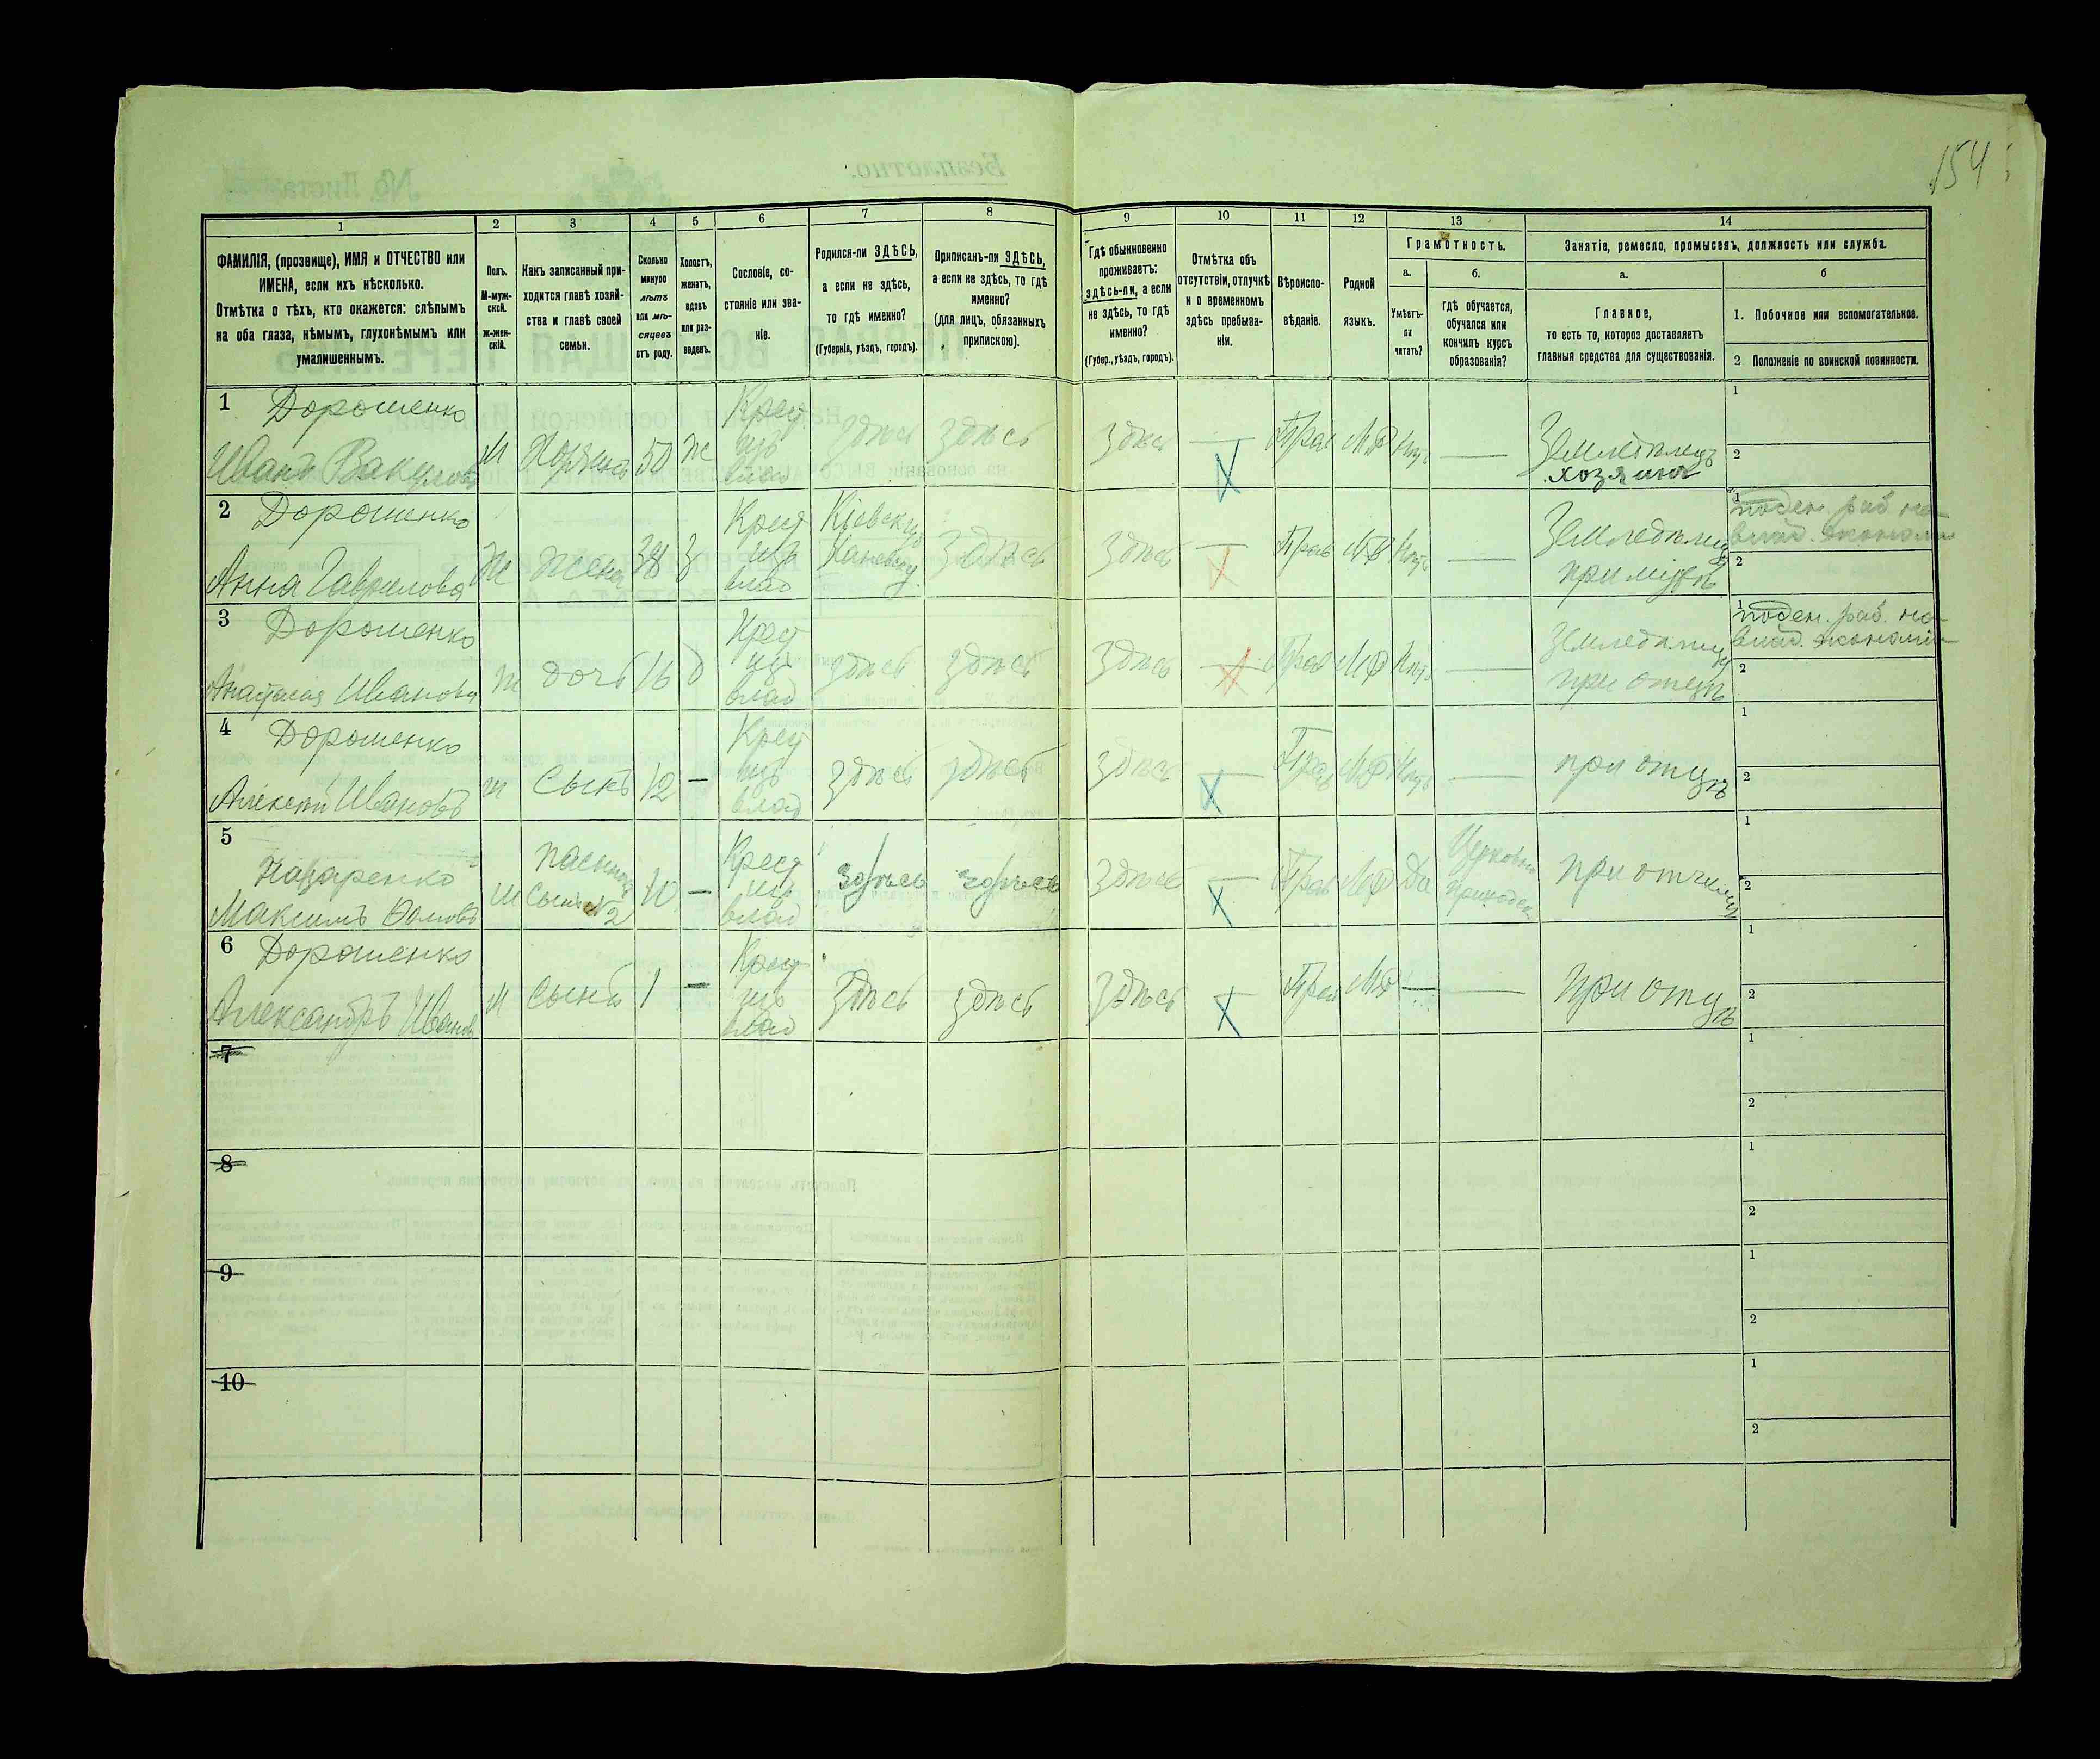 154
1 2 3 4 5 6 7 8 9 10 11 12 13 14
ФАМИЛІЯ, (прозвище), ИМЯ и ОТЧЕСТВО или
ИМЕНА, если ихъ нѣсколько.
Отмѣтка о тѣхъ, кто окажется: слѣпымъ
на оба глаза, нѣмымъ, глухонѣмымъ или
умалишеннымъ.
Полъ.
М-муж-
ской.
ж-жен-
скій.
Какъ записанный при-
ходится главѣ хозяй-
ства и главѣ своей
семьи.
Сколько
минуло
лѣтъ
или мѣ-
сяцевъ
отъ роду.
Холостъ,
женатъ,
вдовъ
или раз-
веденъ.
Сословіе, со-
стояніе или зва-
ніе.
Родился-ли ЗДѢСЬ,
а если не здѣсь,
то гдѣ именно?
(Губернія, уѣздъ, городъ).
Приписанъ-ли ЗДѢСЬ,
а если не здѣсь, то гдѣ
именно?
(для лицъ, обязанныхъ
припискою).
Гдѣ обыкновенно
проживаетъ:
здѣсь-ли, а если
не здѣсь, то гдѣ
именно?
(Губер., уѣздъ, городъ).
Отмѣтка объ
отсутствіи, отлучкѣ
и о временномъ
здѣсь пребыва-
ніи.
Вѣроиспо-
вѣданіе.
Родной
языкъ.
Грамотность.
а.
Умѣетъ-
ли
читать?
б.
Гдѣ обучается,
обучался или
кончилъ курсъ
образованія?
Занятіе, ремесло, промыселъ, должность или служба.
а.
Главное,
то есть то, которое доставляетъ
главныя средства для существованія.
б
1. Побочное или вспомогательное.
2 Положеніе по воинской повинности.
1 Дорошенко
Иванъ Вакуловъ
М Хозяинъ 50 ж
Крест
изъ
влад
здѣсь здѣсь здѣсь — Прав МР Нѣтъ —
Земледѣлецъ
хозяинъ
1
2
2 Дорошенко
Анна Гаврилова
Ж Жена 38 З
Крест
изъ
влад
Кіевск. губ
Каневск у.
здѣсь здѣсь — Прав МР Нѣтъ —
Земледѣлица
при мужѣ
1 поден. раб. на
влад. экономіи
2
3 Дорошенко
Анастасия Иванова
Ж дочь 16 д
Крест
изъ
влад
здѣсь здѣсь здѣсь — Прав МР Нѣтъ —
Земледѣлица
при отцѣ
1 поден. раб. на
влад. экономіи
2
4 Дорошенко
Алексѣй Ивановъ
м Сынъ 12 —
Крест
изъ
влад
здѣсь здѣсь здѣсь — Прав МР Нѣтъ —
при отцѣ
1
2
5
Назаренко
Максимъ
м пасынокъ
Сынъ №2
10 —
Крест
изъ
влад
здѣсь здѣсь здѣсь Прав МР Да
Церковно
приходск.
при отчимѣ
1
2
6 Дорошенко
Александръ Ивановъ
М Сынъ 1 —
Крест
изъ
влад
здѣсь здѣсь здѣсь — Прав МР — —
при отцѣ
1
2
7
1
2
8
1
2
9
1
2
10
1
2